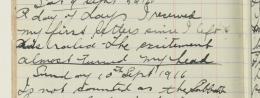 Sat 9 Sept 1916
A day of days I received
my first letters since I left
the excitement
almost turned my head
Sunday 10th Sept 1916
Is not counted as the Sabbath